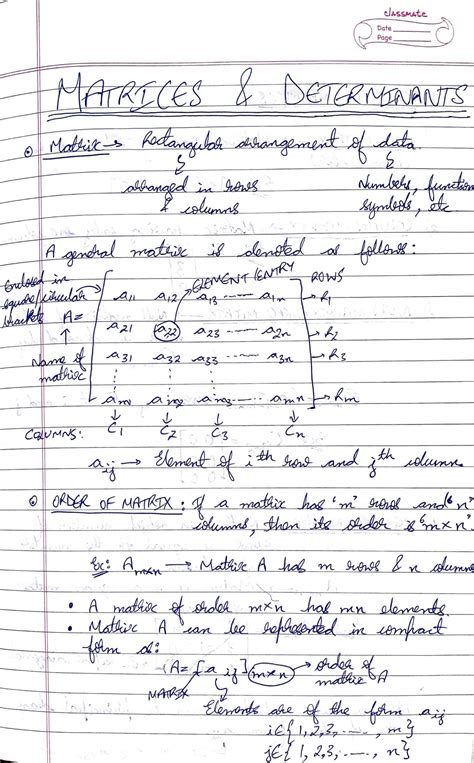 classmate
Date
Page
MATRICES & DETERMINANTS
Matrix → Rectangular arrangement of data.
arranged in rows & columns
Numbers, function symbols, etc
A general matrix is denoted as follows:
Enclosed in square/circular brackets
ELEMENT/ENTRY
ROWS
A=
a11 a12 a13 ----- a1n → R1
a21 a22 a23 ----- a2n → R2
a31 a32 a33 ----- a3n → R3
am1 am2 am3 ----- amn → Rm
Name of matrix
COLUMNS: C1 C2 C3 Cn
aij → Element of ith row and jth column
ORDER OF MATRIX: If a matrix has 'm' rows and 'n'
columns, then its order is 'm×n'.
Ex: Am×n → Matrix A has m rows & n columns
• A matrix of order m×n has mn elements.
• Matrix A can be represented in compact
form as:
A = [aij] m×n → order of matrix A
MATRIX
Elements are of the form aij
i∈{1,2,3,----, m}
j∈{1,2,3,----, n}